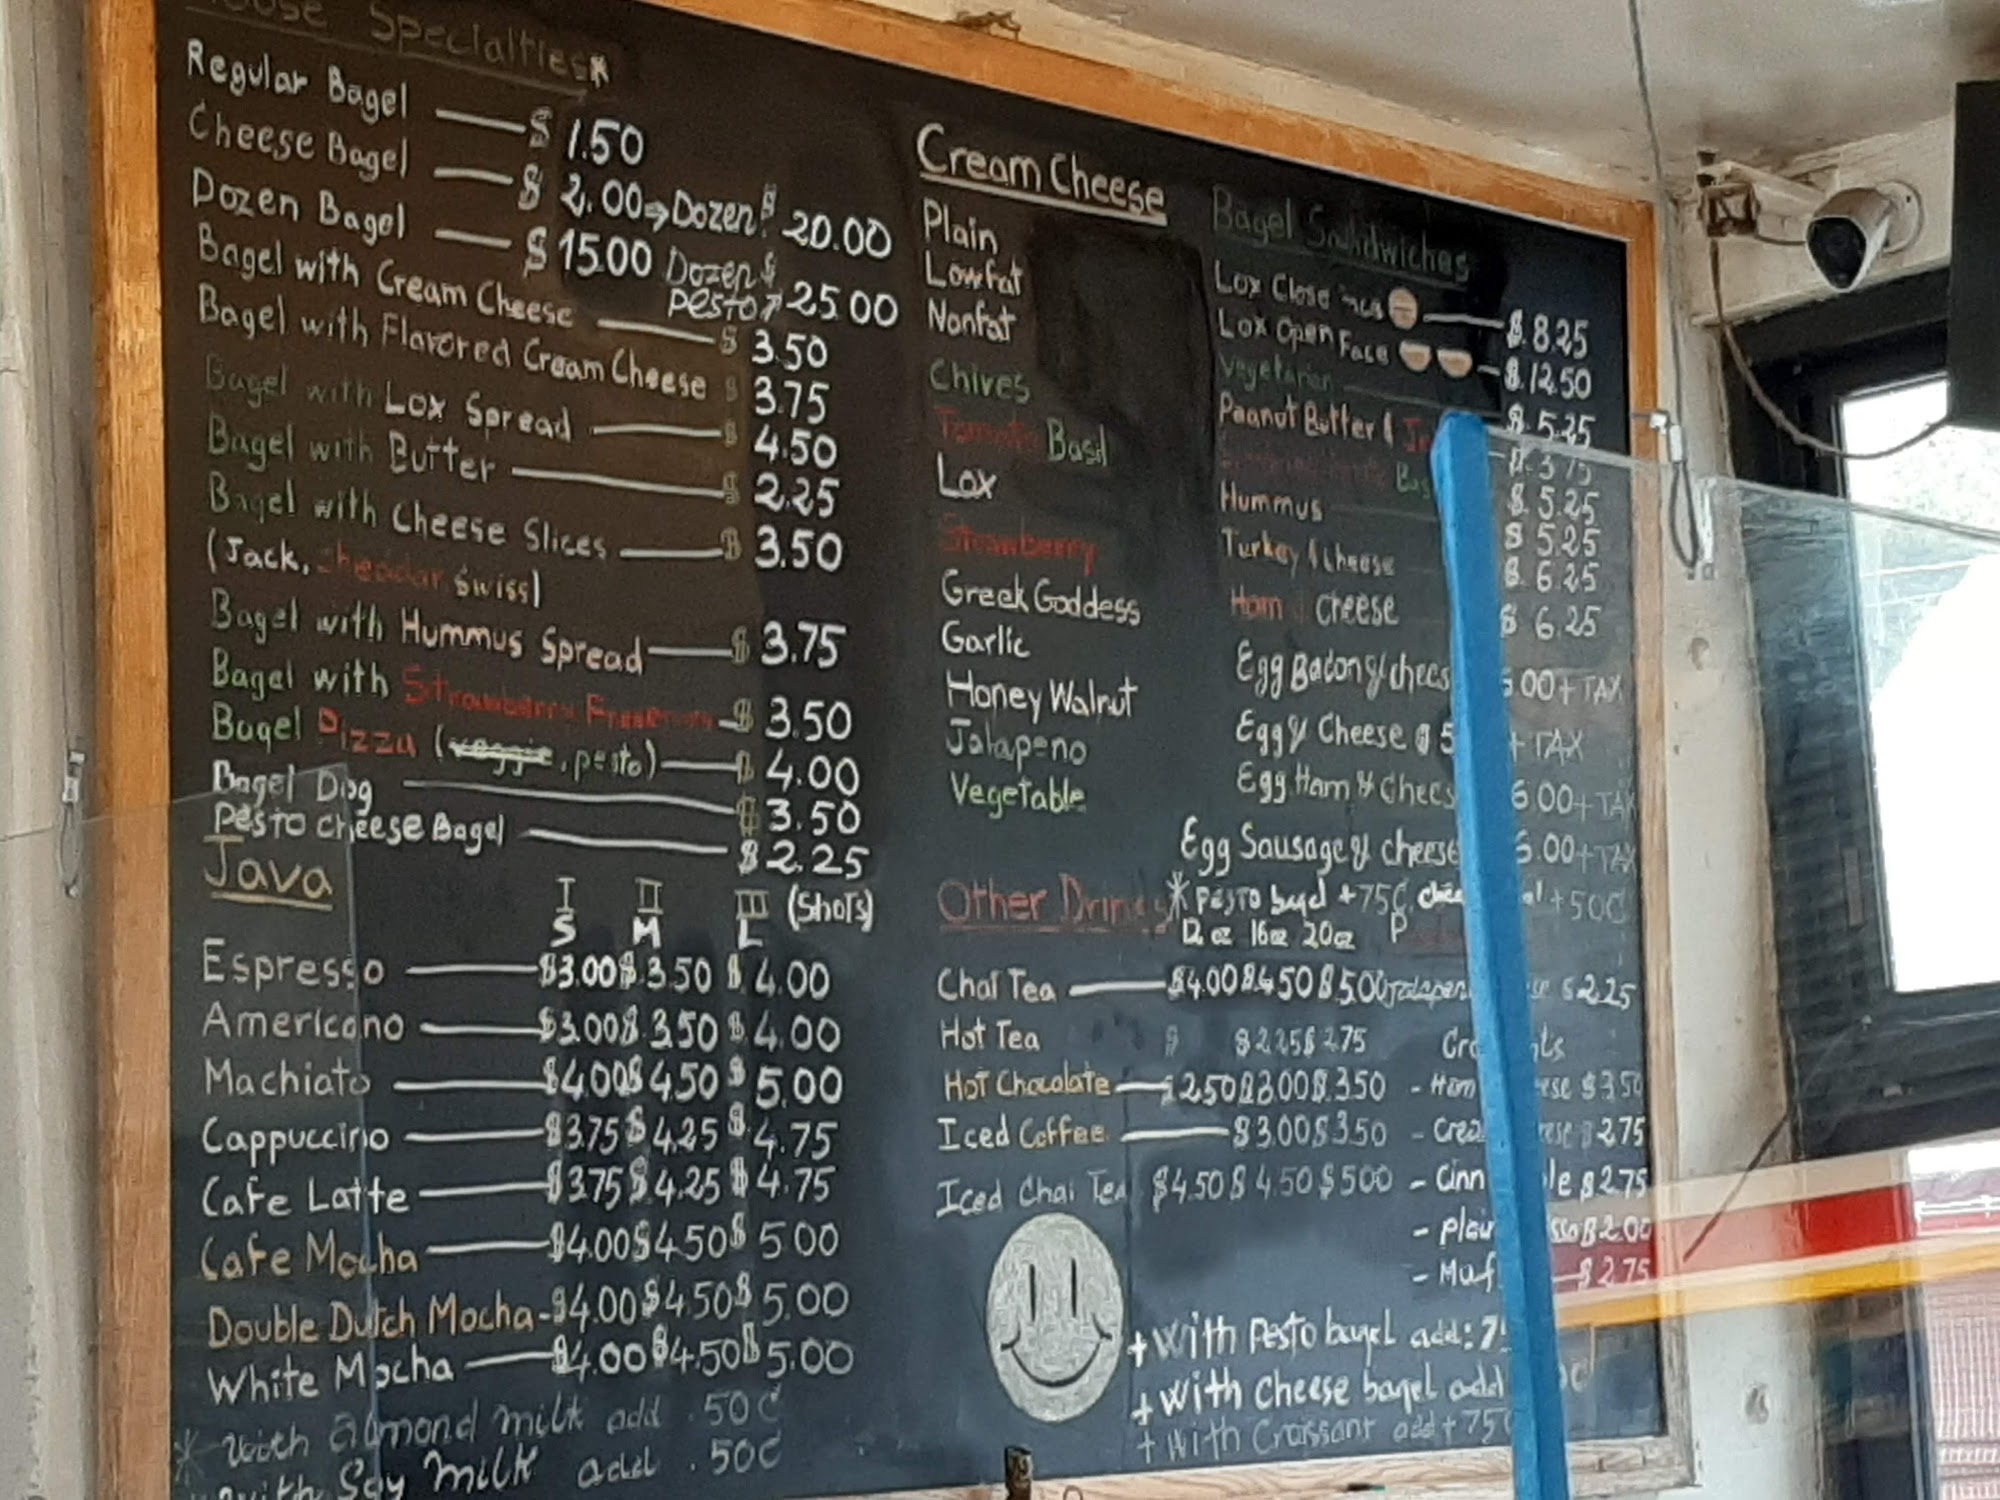 Specialties*
Regular Bagel $ 1.50
Cheese Bagel $ 2.00 → Dozen $ 20.00
Dozen Bagel $ 15.00 Dozen $
Pesto 25.00
Bagel with Cream Cheese $ 3.50
Bagel with Flavored Cream Cheese $ 3.75
Bagel with Lox Spread $ 4.50
Bagel with Butter $ 2.25
Bagel with Cheese Slices $ 3.50
(Jack, cheddar swiss)
Bagel with Hummus Spread $ 3.75
Bagel with Strawberry $ 3.50
Bagel Pizza (veggie, pesto) $ 4.00
Bagel Dog $ 3.50
Pesto cheese Bagel $ 2.25
Java
I II III (Shots)
S M L
Espresso $3.00 $3.50 $4.00
Americano $3.00 $3.50 $4.00
Machiato $4.00 $4.50 $5.00
Cappuccino $3.75 $4.25 $4.75
Cafe Latte $3.75 $4.25 $4.75
Cafe Mocha $4.00 $4.50 $5.00
Double Dutch Mocha - $4.00 $4.50 $5.00
White Mocha $4.00 $4.50 $5.00
* with almond milk add .50¢
with Soy Milk add .50¢
Cream Cheese
Plain
Lowfat
Nonfat
Chives
Tomato Basil
Lox
Strawberry
Greek Goddess
Garlic
Honey Walnut
Jalapeno
Vegetable
Bagel Sandwiches
Lox Close $ 8.25
Lox Open Face $ 12.50
Vegetarian $ 5.25
Peanut Butter & $ 3.75
$ 5.25
Hummus $ 5.25
Turkey & cheese $ 6.25
Ham & cheese $ 6.25
Egg Bacon & chees 6.00 + TAX
Egg & Cheese $ 5 + TAX
Egg Ham & Chees 6.00 + TAX
Egg Sausage & cheese 6.00 + TAX
* Pesto bagel + 75¢ + 50¢
Other Drinks
12 oz 16oz 20oz
Chai Tea $4.00 $4.50 $5.00
Hot Tea $ $2.25 $2.75
Hot Chocolate $2.50 $3.00 $3.50
Iced Coffee $3.00 $3.50
Iced Chai Tea $4.50 $4.50 $5.00
$ 2.25
- Ham $3.50
$2.75
$2.75
- Plain $2.00
$2.75
+ with Pesto bagel add:
+ with cheese bagel add
+ with Croissant add + 75¢